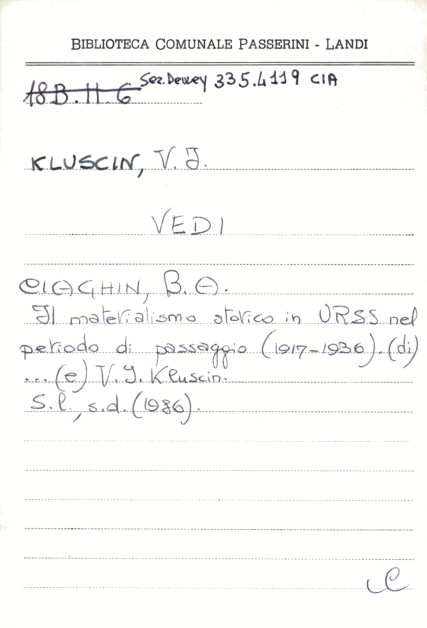 BIBLIOTECA COMUNALE PASSERINI - LANDI
18B.II.6 Sez. Dewey 335.4119 CIA
KLUSCIN, V. I.
VEDI
CIAGHIN, B. A.
Il materialismo storico in URSS nel
periodo di passaggio (1917-1936). (di)
... (e) V. I. Kluscin.
S. l., s. d. (1986).